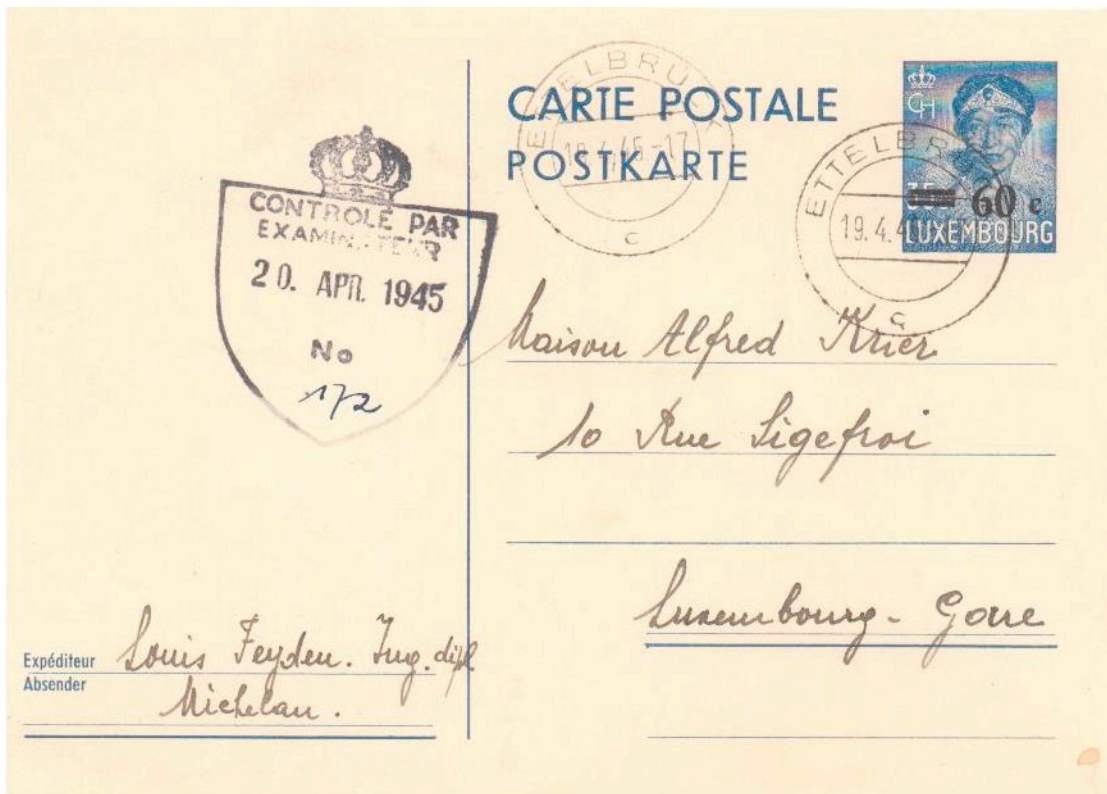 CARTE POSTALE
POSTKARTE
ETTELBRUCK
-17
c
ETTELBRUCK
19.4.
c
GH
60 c
LUXEMBOURG
CONTROLÉ PAR
EXAMINATEUR
20. APR. 1945
No
172
Maison Alfred Krier
10 Rue Sigefroi
Luxembourg - Gare
Expéditeur
Absender
Louis Feyden. Ing. dipl
Michelau.